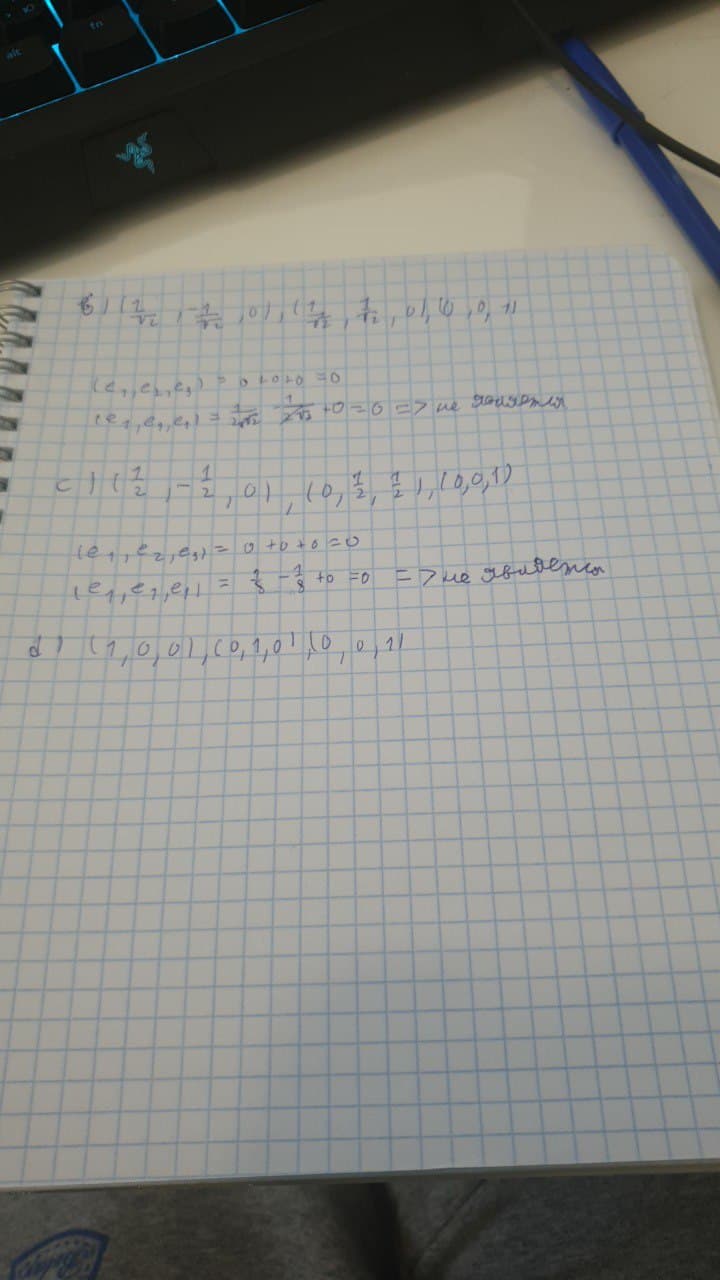 alt
fn
b) (1/√2, -1/√2, 0), (1/√2, 1/√2, 0), (0, 0, 1)
(e₁, e₂, e₃) = 0+0+0 = 0
(e₁, e₁, e₁) = 1/2√2 - 1/2√2 + 0 = 0 => не является
c) (1/2, -1/2, 0), (0, 1/2, 1/2), (0,0,1)
(e₁, e₂, e₃) = 0+0+0=0
(e₁, e₁, e₁) = 1/8 - 1/8 + 0 = 0 => не является
d) (1, 0, 0), (0, 1, 0), (0, 0, 1)